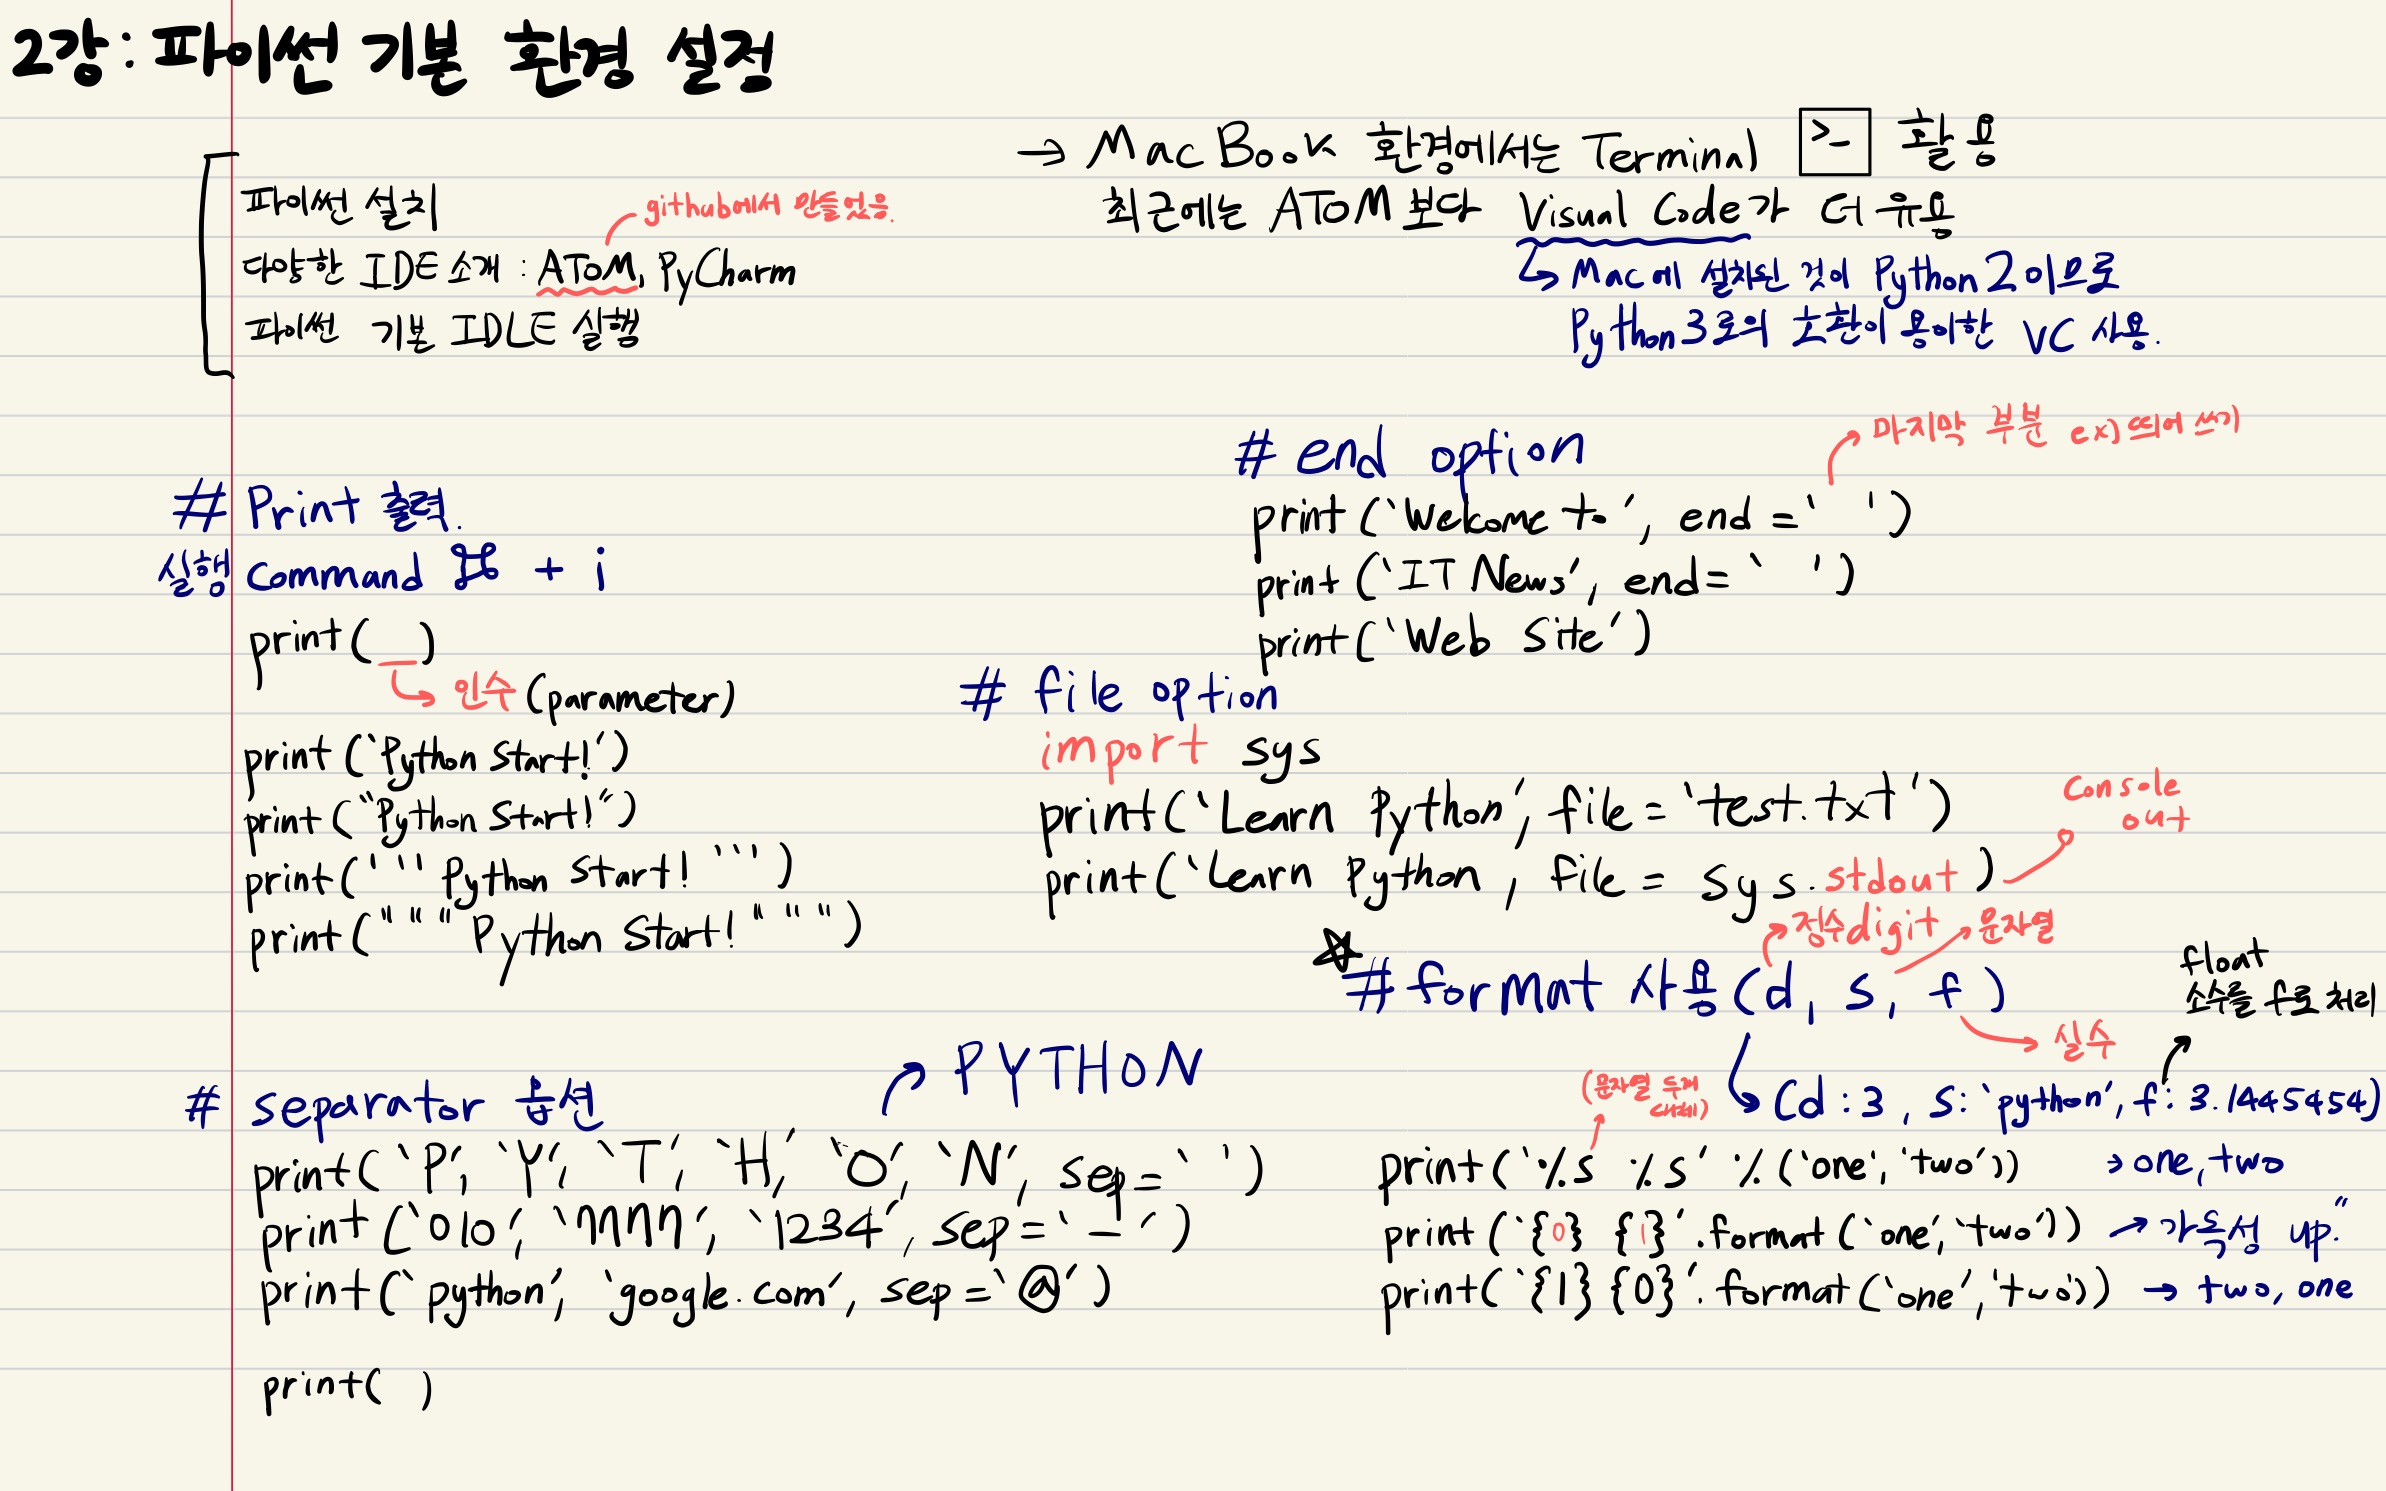 2강: 파이썬 기본 환경 설정
파이썬 설치
github에서 만들었음.
다양한 IDE 소개 : ATOM, PyCharm
파이썬 기본 IDLE 실행
→ MacBook 환경에서는 Terminal >_ 활용
최근에는 ATOM 보다 Visual Code가 더 유용
Mac에 설치된 것이 Python2이므로
Python3로의 소환이 용이한 VC 사용.
# Print 출력.
실행 command ⌘ + i
print( _ )
→ 인수 (parameter)
print ('Python Start!')
print ("Python Start!")
print (''' Python Start! ''')
print (""" Python Start! """)
# separator 옵션
→ PYTHON
print( 'P', 'Y', 'T', 'H', 'O', 'N', sep=' ')
print ('010', 'nnnn', '1234', sep='-')
print('python', 'google.com', sep='@')
print( )
# end option
→ 마지막 부분 ex) 띄어 쓰기
print ('Welcome to', end =' ')
print ('IT News', end=' ')
print('Web Site')
# file option
import sys
print('Learn Python', file = 'test.txt')
Console
out
print('Learn Python , file = sys.stdout )
정수digit
문자열
☆ # format 사용 (d, s, f )
실수
float
소수를 f로 처리
(d : 3 , s: 'python', f: 3.1445454)
(문자열 두개
대체)
print('%s %s' % ('one', 'two')) → one, two
print ('{0} {1}'.format ('one', 'two')) → 가독성 up."
print('{1} {0}'.format ('one', 'two')) → two, one